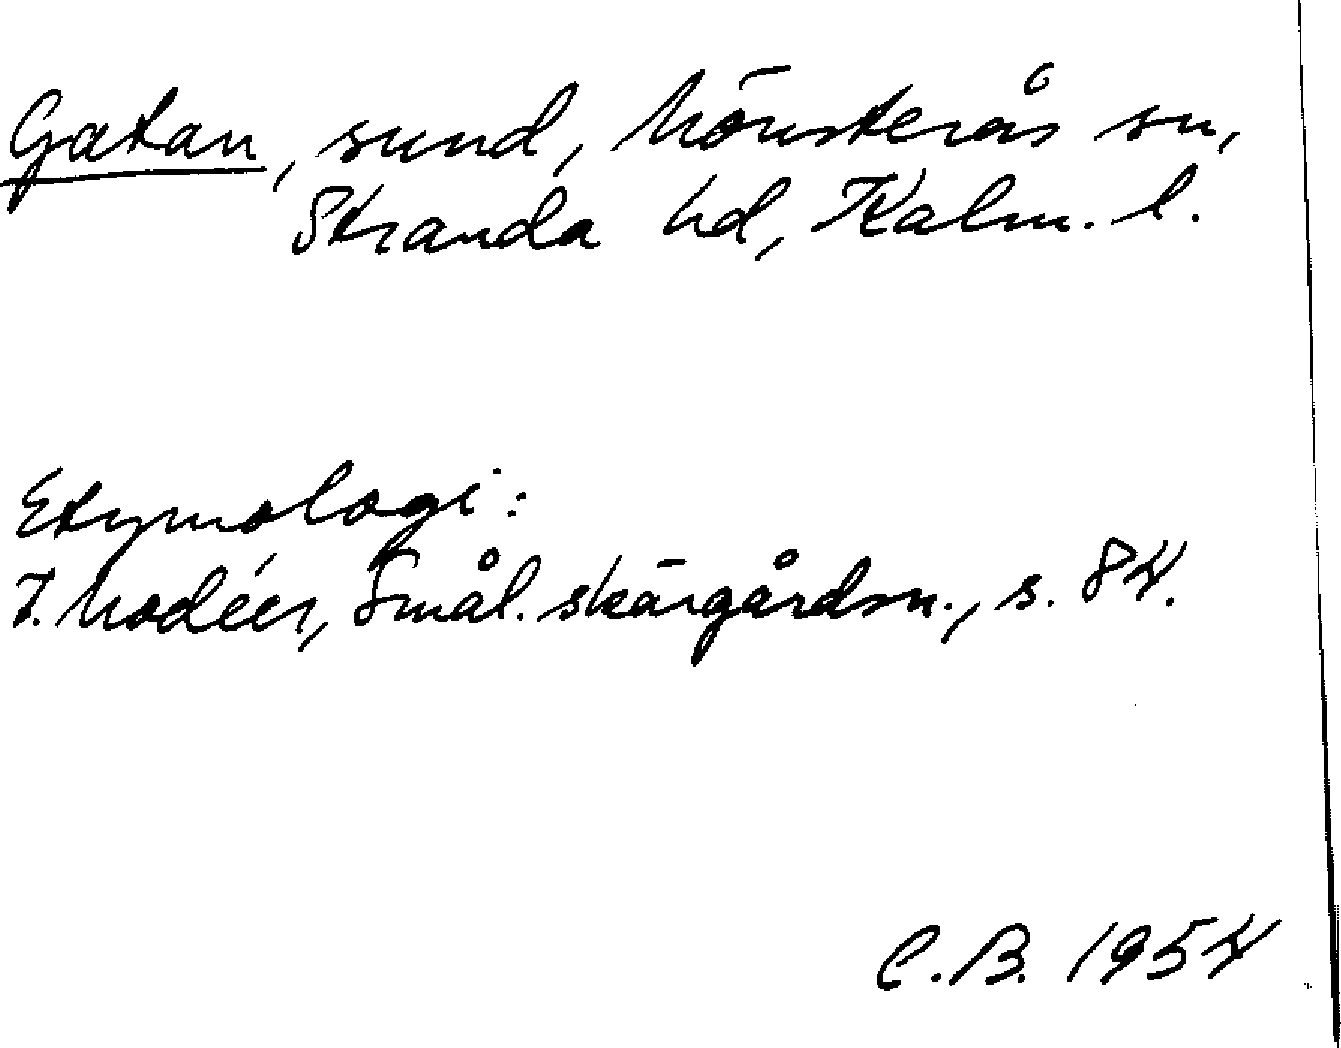 Gatan, sund, Mönsterås sn,
Stranda hd, Kalm. l.
Etymologi:
I. Modéer, Smål. skärgårdsn., s. 84.
C.B. 1954